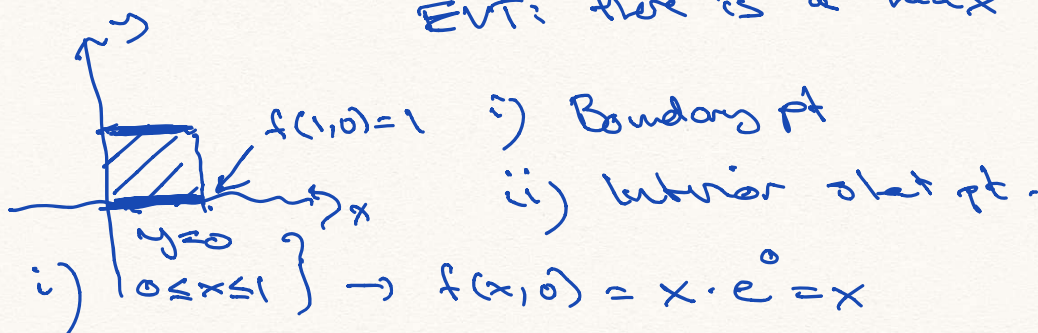 EVT: there is a max
f(1,0)=1 i) Boundary pt
x ii) Interior stat pt.
y=0
i) 0≤x≤1 } → f(x,0) = x·e⁰ = x